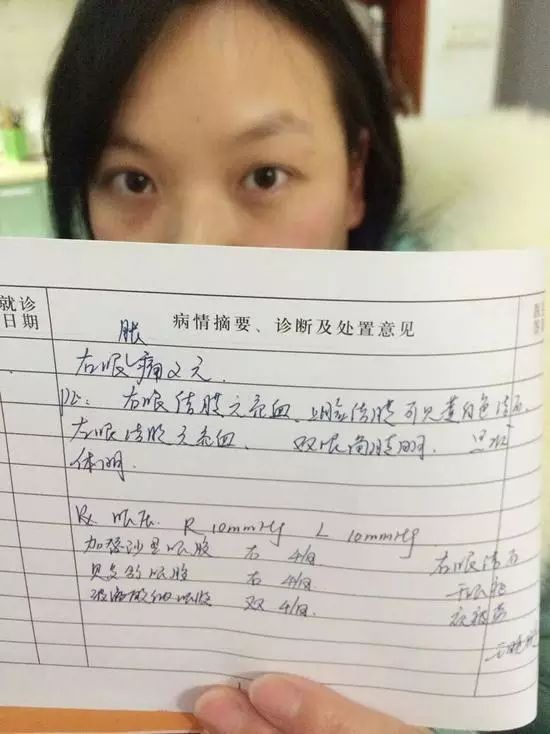 就诊
日期
病情摘要、诊断及处置意见
右眼胀痛2天.
PE: 右眼结膜充血、上睑结膜可见黄白色结石
左眼结膜无充血、 双眼角膜明.
体明.
Rx 眼压 R 10mmHg L 10mmHg
加替沙星眼 右 4/日 右眼结石
贝复舒眼 右 4/日 干眼
玻璃酸钠 双 4/日.